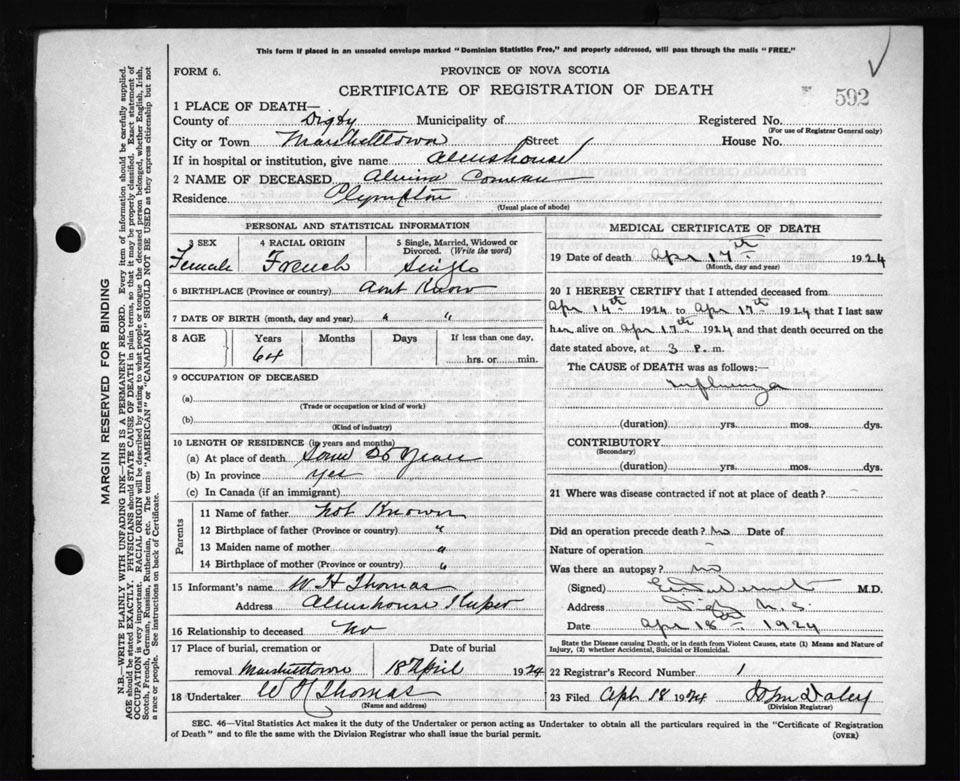 This form if placed in an unsealed envelope marked "Dominion Statistics Free," and properly addressed, will pass through the mails "FREE."
FORM 6.
PROVINCE OF NOVA SCOTIA
CERTIFICATE OF REGISTRATION OF DEATH
592
1 PLACE OF DEATH—
County of Digby Municipality of Registered No.
(For use of Registrar General only)
City or Town Marshalltown Street House No.
If in hospital or institution, give name Almshouse
2 NAME OF DECEASED Alvina Comeau
Residence Plympton
(Usual place of abode)
PERSONAL AND STATISTICAL INFORMATION
3 SEX 4 RACIAL ORIGIN 5 Single, Married, Widowed or Divorced. (Write the word)
Female French Single
6 BIRTHPLACE (Province or country) dont Know
7 DATE OF BIRTH (month, day and year) " "
8 AGE Years Months Days If less than one day,
64 hrs. or min.
9 OCCUPATION OF DECEASED
(a)
(Trade or occupation or kind of work)
(b)
(Kind of industry)
10 LENGTH OF RESIDENCE (in years and months)
(a) At place of death Some 26 Years
(b) In province yes
(c) In Canada (if an immigrant)
Parents
11 Name of father not Known
12 Birthplace of father (Province or country) "
13 Maiden name of mother "
14 Birthplace of mother (Province or country) "
15 Informant's name W H Thomas
Address Almshouse Keeper
16 Relationship to deceased No
17 Place of burial, cremation or removal Marshalltown
Date of burial
18 April 1924
18 Undertaker W H Thomas
(Name and address)
MEDICAL CERTIFICATE OF DEATH
19 Date of death Apr 17th 1924
(Month, day and year)
20 I HEREBY CERTIFY that I attended deceased from
Apr 14th 1924 to Apr 17th 1924 that I last saw
her alive on Apr 17th 1924 and that death occurred on the
date stated above, at 3 P. m.
The CAUSE of DEATH was as follows:—
Influenza
(duration) yrs. mos. dys.
CONTRIBUTORY
(Secondary)
(duration) yrs. mos. dys.
21 Where was disease contracted if not at place of death?
Did an operation precede death? No Date of
Nature of operation
Was there an autopsy? no
(Signed) M.D.
Address Digby N.S.
Date Apr 18th 1924
State the Disease causing Death, or in death from Violent Causes, state (1) Means and Nature of Injury, (2) whether Accidental, Suicidal or Homicidal.
22 Registrar's Record Number 1
23 Filed Aph 18 1924 John Daley
(Division Registrar)
SEC. 46—Vital Statistics Act makes it the duty of the Undertaker or person acting as Undertaker to obtain all the particulars required in the "Certificate of Registration
of Death" and to file the same with the Division Registrar who shall issue the burial permit.
(OVER)
MARGIN RESERVED FOR BINDING
N.B.—WRITE PLAINLY WITH UNFADING INK—THIS IS A PERMANENT RECORD. Every item of information should be carefully supplied.
AGE should be stated EXACTLY. PHYSICIANS should STATE CAUSE OF DEATH in plain terms, so that it may be properly classified. Exact statement of
OCCUPATION is very important. RACIAL ORIGIN will be described by stating to what people or tongue the deceased person belonged, whether English, Irish,
Scotch, French, German, Russian, Ruthenian, etc. The terms "AMERICAN" or "CANADIAN" SHOULD NOT BE USED as they express citizenship but not
a race or people. See instructions on back of Certificate.